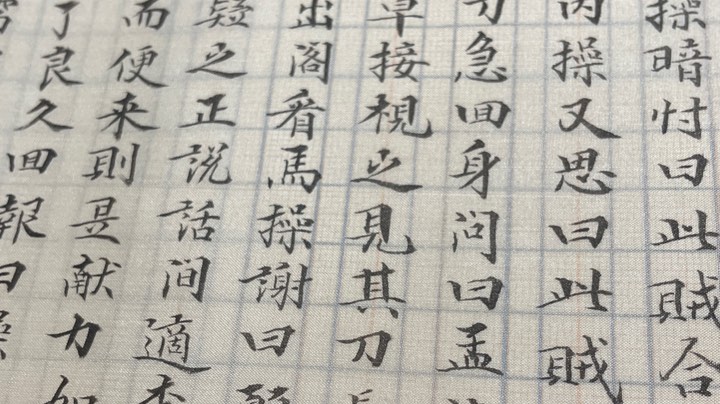 操暗忖曰此賊合
操又思曰此賊
急回身問曰孟
早接視之見其刀
出閣看馬操謝曰
疑之正說話間適
而便来則是献力如
了良久回報曰